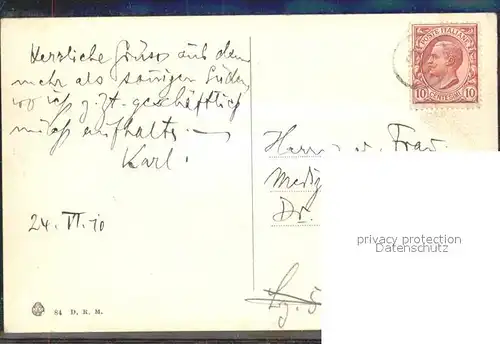 Herzliche Grüsse aus dem
mehr als sonnigen Süden
wo ich z. Zt. geschäftlich
mich aufhalte. —
Karl.
24. VI. 10
84 D. R. M.
POSTE ITALIANE
10 CENTESIMI 10
Herrn u. Frau
Mediz
Dr.
privacy protection
www.ansichtskarten-center.de